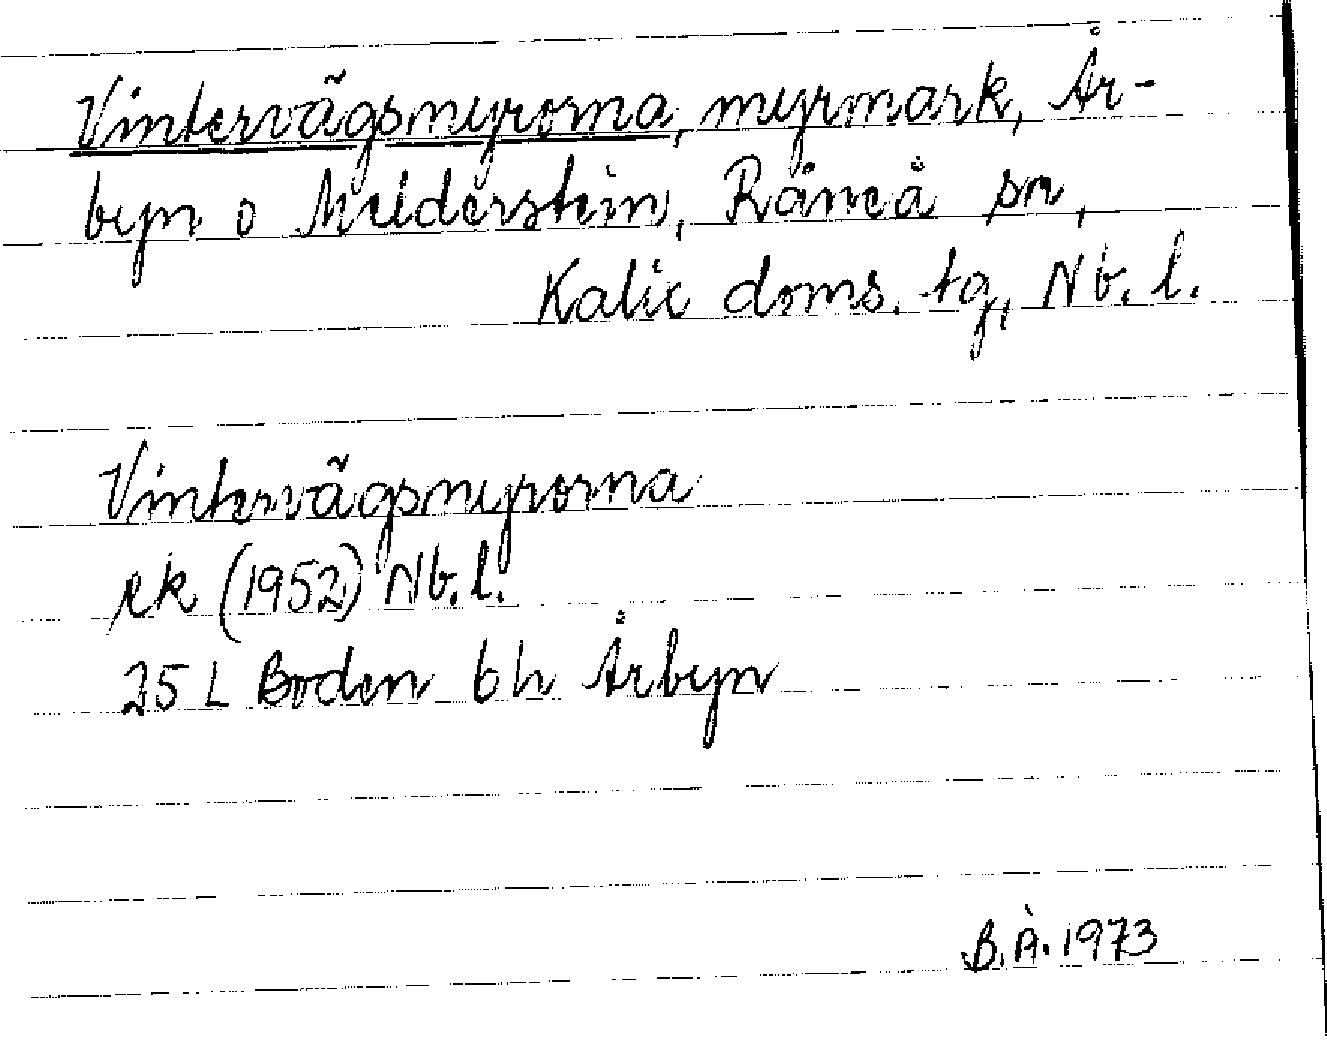 Vintervägsmyrorna, myrmark, År-
byn o Mulderstein, Råneå sn,
Kalix doms. tg, Nb. l.
Vintervägsmyrorna
ek (1952) Nb. l.
25 L Boden 6h Årbyn
B. Å. 1973